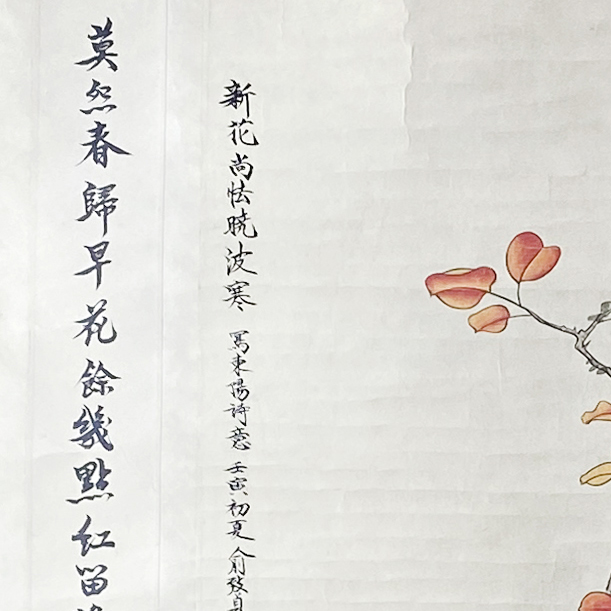 新花尚怯曉波寒 寫東陽詩意 壬寅初夏 俞致貞
莫怨春歸早花餘幾點紅留